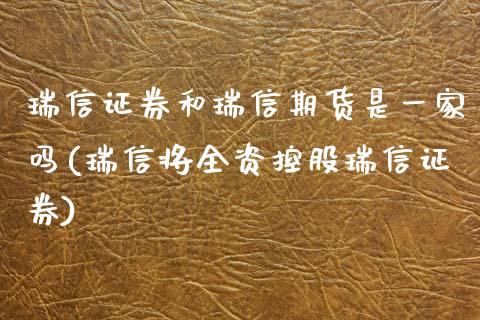 瑞信证券和瑞信期货是一家
吗(瑞信将全资控股瑞信证
券)